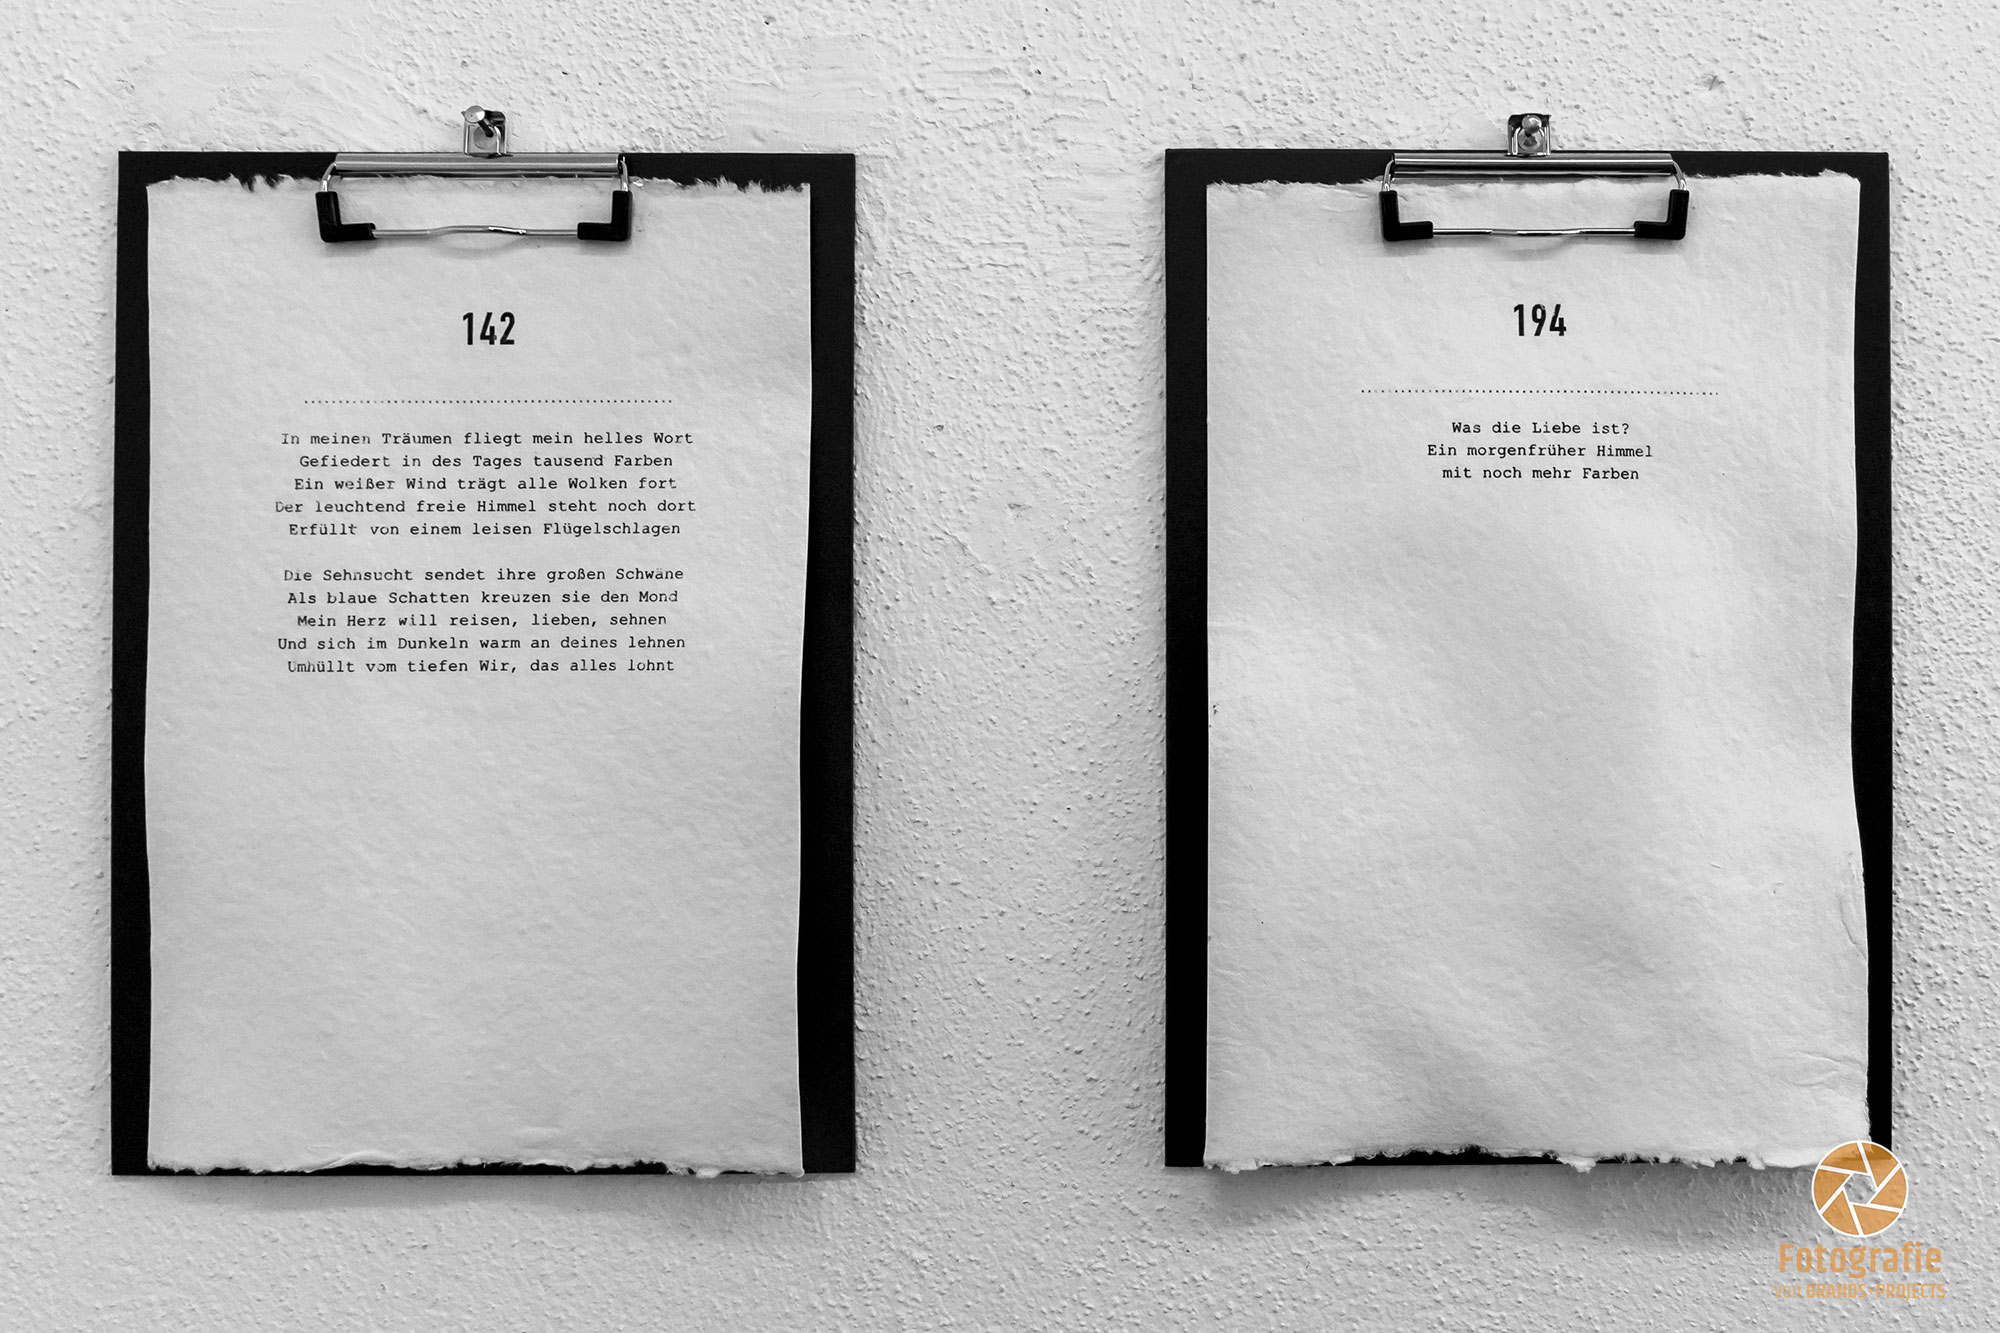 142
In meinen Träumen fliegt mein helles Wort
Gefiedert in des Tages tausend Farben
Ein weißer Wind trägt alle Wolken fort
Der leuchtend freie Himmel steht noch dort
Erfüllt von einem leisen Flügelschlagen
Die Sehnsucht sendet ihre großen Schwäne
Als blaue Schatten kreuzen sie den Mond
Mein Herz will reisen, lieben, sehnen
Und sich im Dunkeln warm an deines lehnen
Umhüllt vom tiefen Wir, das alles lohnt
194
Was die Liebe ist?
Ein morgenfrüher Himmel
mit noch mehr Farben
Fotografie
BRANDS+PROJECTS